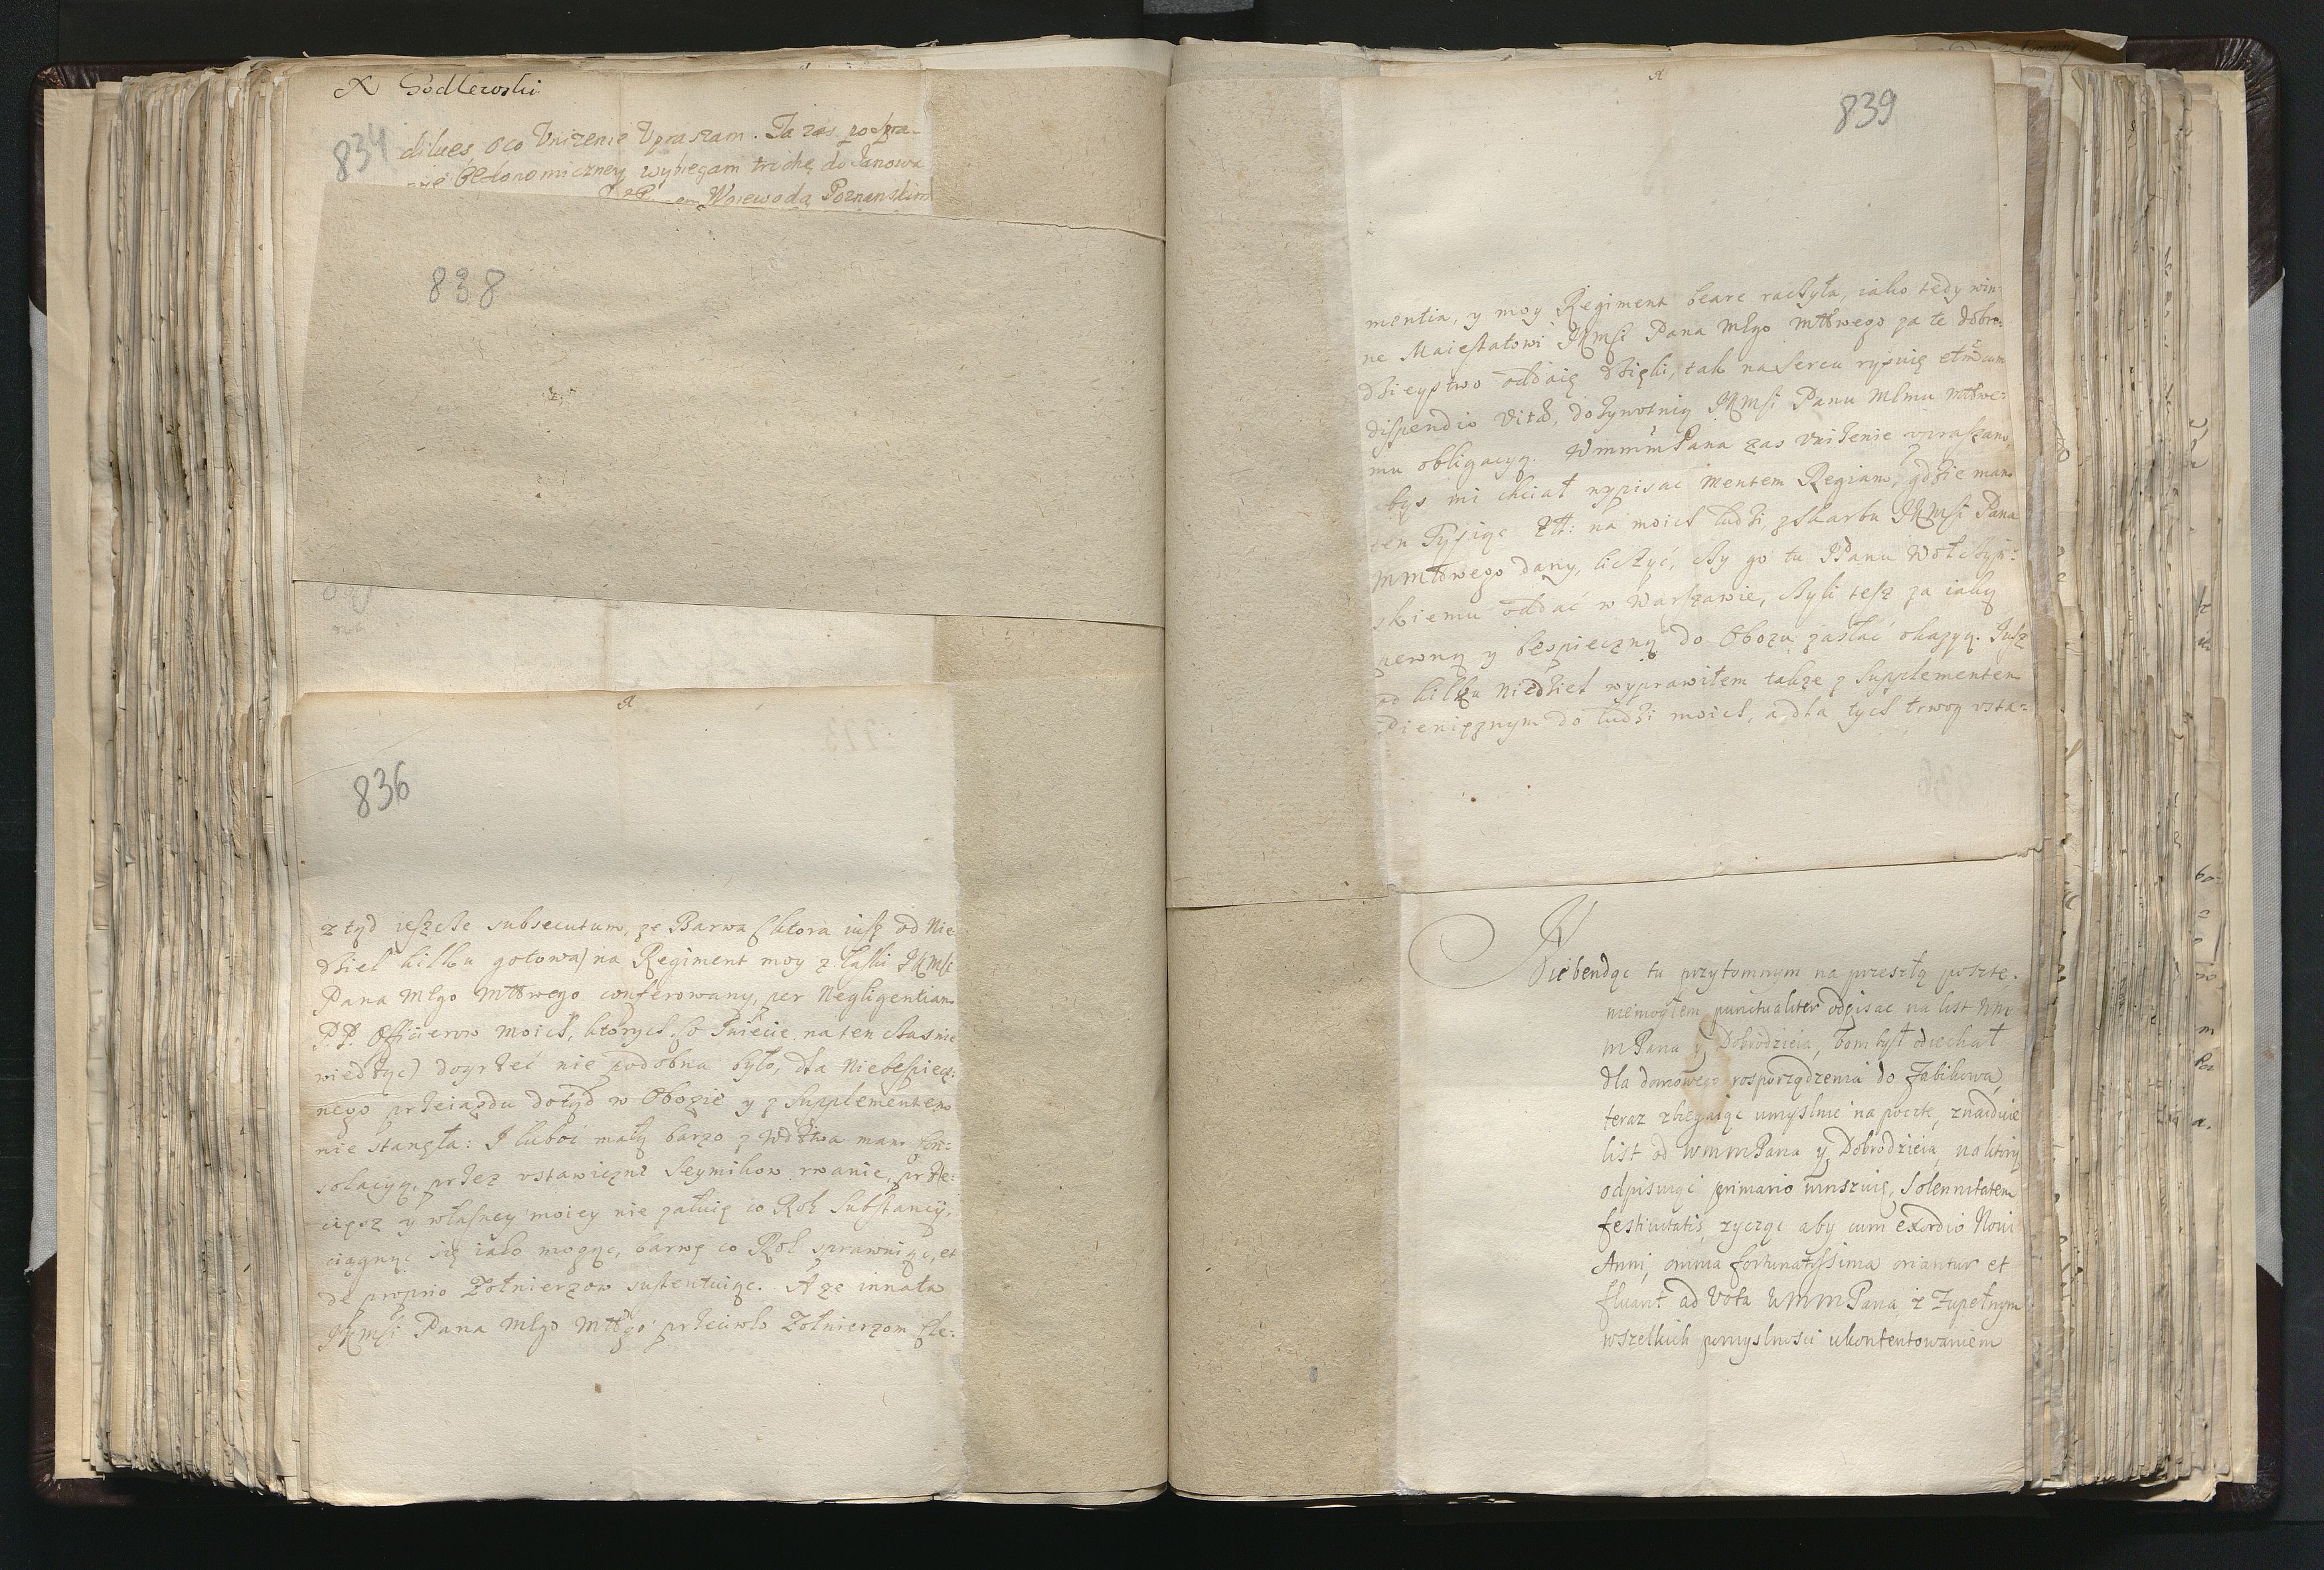 X Godlewski
834
dilues, o co Vnizenie Vpraszam. Ja zas po spra-
wie OEkonomiczney wybiegam trochę do Janowa
Woiewodą Poznanskim
838
836
z tąd ieszcze subsecutum, ze Barwa (ktora iusz od Nie-
dziel kilku gotowa) na Regiment moy z łaski JKMśi
Pana Młgo Mttwego conferowany, per Negligentiam
P.P. Officierow moich, ktorych
wiedząc) doyrzeć nie podobna było, dla Niebespiecz:
nego przeiazdu dotąd w Obozie y z Supplementem
nie stanęła: I luboć małą barzo z Wdztwa mam Con:
solacyą, przez vstawiczne Seymikow rwanie, prze:
ciesz y własney moiey nie załuię co Rok Substancÿ,
ciągnąc się iako mogąc, barwę co Rok sprawuiąc, et
de proprio Zołnierzow sustentuiąc. A ze innata
JKMśi Pana Młgo Mttgo przeciwko Zołnierzom Cle:
839
mentia, y moy Regiment beare raczyła, iako tedy win:
ne Maiestatowi JKMśi Pana Młgo Mttwego za te dobro:
dzieystwo oddaię dzięki, tak na sercu rysuię etiã cum
dispendio Vitæ, dozywotnią JKMśi Panu Młmu Mttwe:
mu obligacyą. WmmmPana zas Vnizenie vpraszam,
bys mi chciał wypisac Mentem Regiam, gdzie mam
ten Tysiąc Ztt: na moich ludzi, z Skarbu JKMśi Pana
MMttwego dany, liczyć, czy go tu JPanu Wołczyn:
skiemu oddać w Warszawie, czyli tesz za iaką
pewną y bespieczną do Obozu zasłać okazyą. Jusz
od kilku Niedziel wyprawiłem także z Supplementem
Pienięznym do ludzi moich, a dla tych trwog vsta:
Nie bendąc tu przytomnym na przeszłą posztę,
niemogłem punctualiter odpisac na list Wm
mPana y Dobrodzieia, bom był odiechał
dla domowego rosporządzenia do Zabikowa,
teraz zbiegaiąc umyslnie na pocztę, znaiduie
list od WmmPana y Dobrodzieia, na ktory
odpisuiąc primario winszuię, Solennitatem
festivitatis, zycząc aby cum exordio Novi
Anni, omnia fortunatissima oriantur et
fluant ad Vota WmmPana z Zupełnym
wszelkich pomyslnosci ukontentowaniem